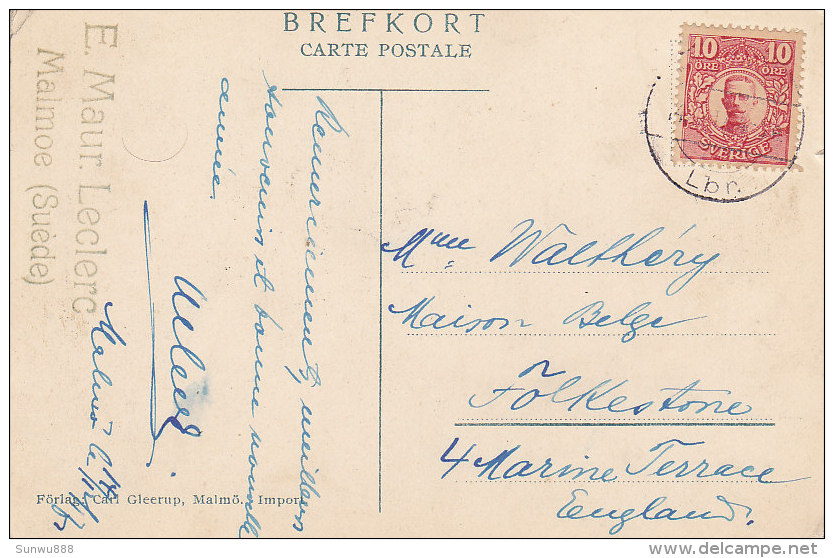 BREFKORT
CARTE POSTALE
E. Maur. Leclerc
Malmoe (Suède)
Remerciements, meilleurs
souvenirs et bonne nouvelle
année
Malmö le
10 10
ÖRE ÖRE
SVERIGE
Lbr.
Mme Walthéry
Maison Belge
Folkestone
4 Marine Terrace
England.
Förlag: Carl Gleerup, Malmö. Import
Sunwu888
delcampe.net